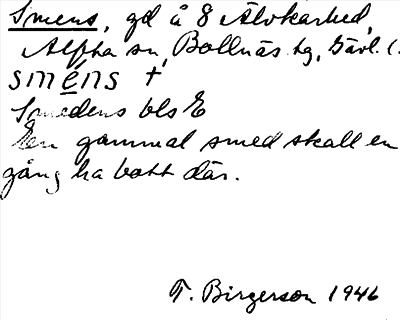 Smens, gd å 8 Älvkarhed,
Alfta sn, Bollnäs tg, Gävl. l.
sméns +
Smedens bls E
En gammal smed skall en
gång ha bott där.
T. Birgerson 1946